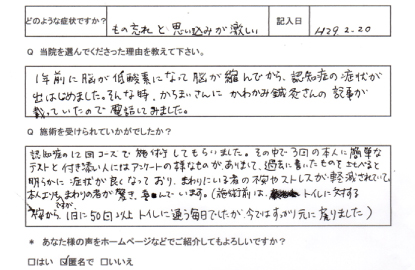 どのような症状ですか？ もの忘れと思い込みが激しい 記入日 H29.2.20
Q 当院を選んでくださった理由を教えて下さい。
1年前に脳が低酸素になって脳が縮んでから、認知症の症状が
出はじめました。そんな時、からまいさんにかわかみ鍼灸さんの記事が
載っていたので電話してみました。
Q 施術を受けられていかがでしたか？
認知症の12回コースで施術してもらいました。その中で3回の本人に簡単な
テストと付き添い人にはアンケートの様なものがありまして、過去に書いたものとくらべると
明らかに症状が良くなっており、まわりにいる者の不安やストレスが軽減されていて、
本人よりもまわりの者が驚き、喜んでいます。（施術前は、トイレに対する
ですが、
から、1日に50回以上トイレに通う毎日でしたが、今ではすっかり元に戻りました）
* あなた様の声をホームページなどでご紹介してもよろしいですか？
□はい ☑匿名で □いいえ